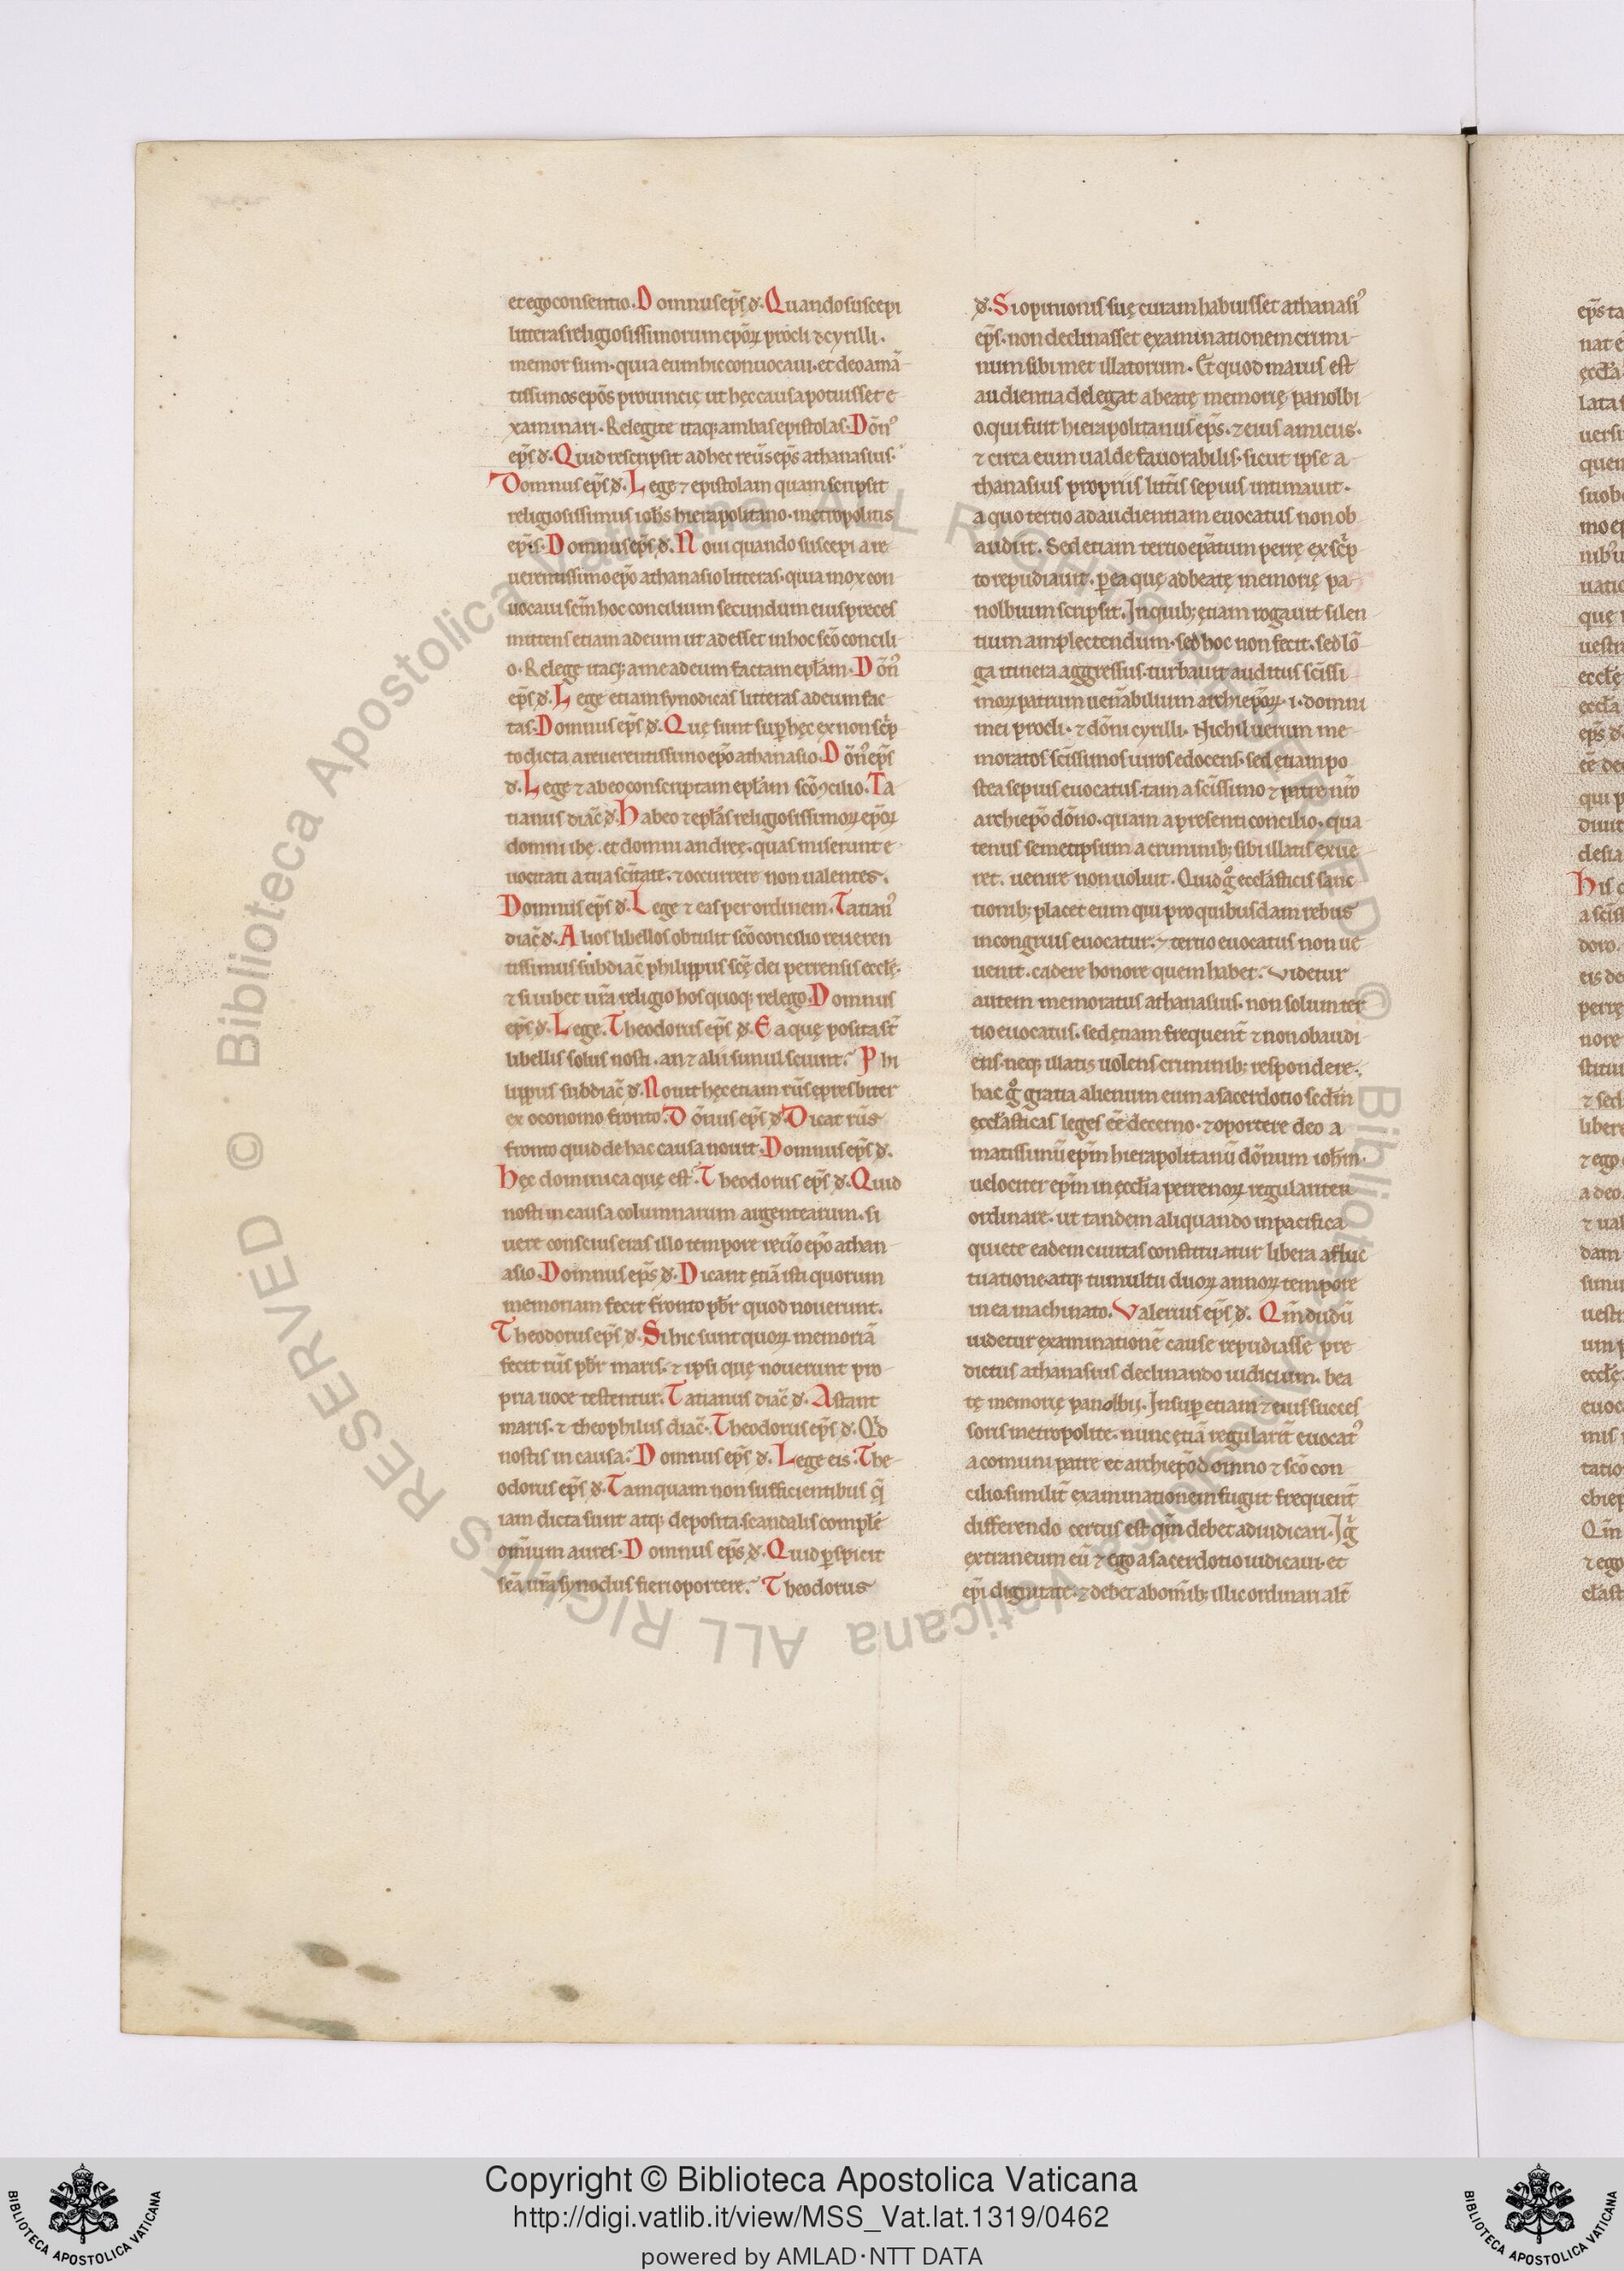 et ego consentio. Domnus ep̃s đ. Quando suscepi
litteras religiosissimorum ep̃oꝝ procli ⁊ cyrilli.
memor sum. quia eum hic conuocaui. et deo amã
tissimos ep̃os prouincię ut hęc causa potuisset e
xaminari. Relegite itaq; ambas epistolas. Dõn᾿
ep̃s đ. Quid rescripsit ad hec reũs ep̃s athanasius.
Domnus ep̃s đ. Lege ⁊ epistolam quam scripsit
religiosissimus ioh̃s hierapolitano. metropolitis
ep̃is. Domnus ep̃s đ. Noui quando suscepi a re
uerentissimo ep̃o athanasio litteras. quia mox con
uocaui sc̃m hoc concilium secundum eius preces
mittens etiam ad eum ut adesset in hoc sc̃o concili
o. Relege itaq; a me ad eum factam ep̃lam. Dõn᾿
ep̃s đ. Lege etiam synodicas litteras ad eum fac
tas. Domnus ep̃s đ. Quę sunt sup̱ hęc ex non sc̃p
to dicta a reuerentissimo ep̃o athanasio. Dõn᾿ ep̃s
đ. Lege ⁊ ab eo conscriptam ep̃lam sc̃o ꝯcilio. Ta
tianus diac̃ đ. Habeo ⁊ ep̃las religiosissimoꝝ ep̃oꝝ
domni ibę. et domni andreę. quas miserunt e
uocitati a tua sc̃itate. ⁊ occurrere non ualentes.
Domnus ep̃s đ. Lege ⁊ eas per ordinem. Tatian᾿
diac̃ đ. Alios libellos obtulit sc̃o concilio reueren
tissimus subdiac̃ philippus sc̃ę dei perrensis eccl̃ę.
⁊ si iubet ur̃a religio hos quoq; relego. Domnus
ep̃s đ. Lege. Theodorus ep̃s đ. Ea quę posita st̃
libellis solus nosti. an ⁊ alii simul sciunt. Phi
lippus subdiac̃ đ. Nouit hęc etiam rũs ę presbiter
ex oconomo fronto. Dõnus ep̃s đ. Dicat rũs
fronto quid de hac causa nouit. Domnus ep̃s đ.
Hęc dominica quę est. Theodorus ep̃s đ. Quid
nosti in causa columnarum argentearum. si
uere conscius eras illo tempore reũo ep̃o athan
asio. Domnus ep̃s đ. Dicant ętiã isti quorum
memoriam fecit fronto pb̃r quod nouerunt.
Theodorus ep̃s đ. Si hic sunt quoꝝ memoriã
fecit rũs pb̃r maris. ⁊ ipsi quę nouerunt pro
pria uoce testentur. Tatianus diac̃ đ. Astant
maris. ⁊ theophilus diac̃. Theodorus ep̃s đ. Qđ
nostis in causa. Domnus ep̃s đ. Lege eis. The
odorus ep̃s đ. Tamquam non sufficientibus q̃
iam dicta sunt atq; deposita. scandalis complẽ
om̃ium aures. Domnus ep̃s đ. Quid p̱spicit
sc̃a ur̃a synodus fieri oportere. Theodorus
đ. Si opinionis suę curam habuisset athanasi᾿
ep̃s. non declinasset examinationem crimi
num sibimet illatorum. Et quod maius est
audientia delegat a beatę memorię panolbi
o. qui fuit hierapolitanus ep̃s. ⁊ eius amicus.
⁊ circa eum ualde fauorabilis. sicut ipse a
thanasius propriis litt̃is sepius intimauit.
a quo tertio ad audientiam euocatus non ob
audiit. Sed etiam tertio ep̃atum perrę ex sc̃p
to repudiauit. p̱ ea quę ad beatę memorię pa
nolbium scripsit. In quib; ętiam rogauit silen
tium amplectendum. sed hoc non fecit. sed lõ
ga itinera aggressus. turbauit auditus sc̃issi
moꝝ patrum uen̄abilium archiep̃oꝝ. i. domni
mei procli. ⁊ dõni cyrilli. Nichil uerum me
moratos sc̃issimos uiros edocens. sed ętiam po
stea sepius euocatus. tam a sc̃issimo ⁊ patre nr̃o
archiep̃o dõno. quam a presenti concilio. qua
tenus semetipsum a criminib; sibi illatis exue
ret. uenire non uoluit. Quid g̊ eccl̃asticis sanc
tionib; placet eum qui pro quibusdam rebus
incongruis euocatur. ⁊ tertio euocatus non ue
uenit. cadere honore quem habet. Videtur
autem memoratus athanasius. non solum ter
tio euocatus. sed ętiam frequent̃ ⁊ non obaudi
ens. neq; illatis uolens criminib; respondere.
hac g̊ gratia alienum eum a sacerdotio scd̃m
eccl̃asticas leges eẽ decerno. ⁊ oportere deo a
matissimũ ep̃m hierapolitanũ dõnum ioh̃m.
uelociter ep̃m in ęccl̃ia perrenoꝝ regulariter
ordinare. ut tandem aliquando in pacifica
quiete eadem ciuitas constituatur libera a fluc
tuatione. atq; tumultu duoꝝ annoꝝ tempore
in ea machinato. Valerius ep̃s đ. Qm̃ dudũ
uidetur examinationẽ cause repudiasse pre
dictus athanasius declinando iudicium. bea
tę memorię panolbij. Insup̱ etiam ⁊ eius succes
soris metropolite. nunc ętiã regularit̃ euocat᾿
a comuni patre et archiep̃o domno ⁊ sc̃o con
cilio. similit̃ examinationem fugit frequent̃
differendo certus est qm̃ debet adiudicari. Ig̃
extraneum eũ ⁊ ego a sacerdotio iudicaui. et
ep̃i dignitate. ⁊ debet ab om̃ib; illic ordinari alt̃
Copyright © Biblioteca Apostolica Vaticana
http://digi.vatlib.it/view/MSS_Vat.lat.1319/0462
powered by AMLAD·NTT DATA